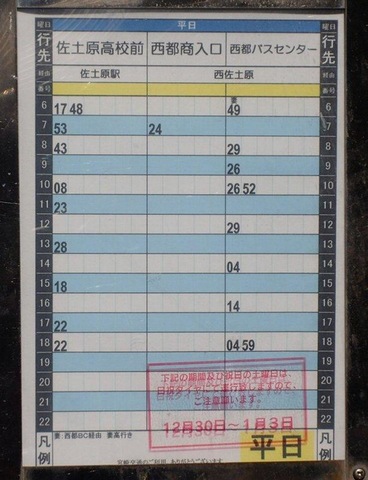 曜日 平日 曜日
行先 佐土原高校前 西都商入口 西都バスセンター 行先
経由 佐土原駅 西佐土原 経由
番号 番号
6 17 48 妻49 6
7 53 24 7
8 43 29 8
9 26 9
10 08 26 52 10
11 23 11
12 29 12
13 28 13
14 04 14
15 18 15
16 14 16
17 22 17
18 22 04 59 18
19 19
20 20
21 21
22 22
凡例 妻:西都BC経由 妻高行き 凡例
下記の期間及び祝日の土曜日は、
日祝ダイヤにて運行致しますので、
ご注意願います。
12月30日~1月3日
平日
宮崎交通のご利用 ありがとうございます